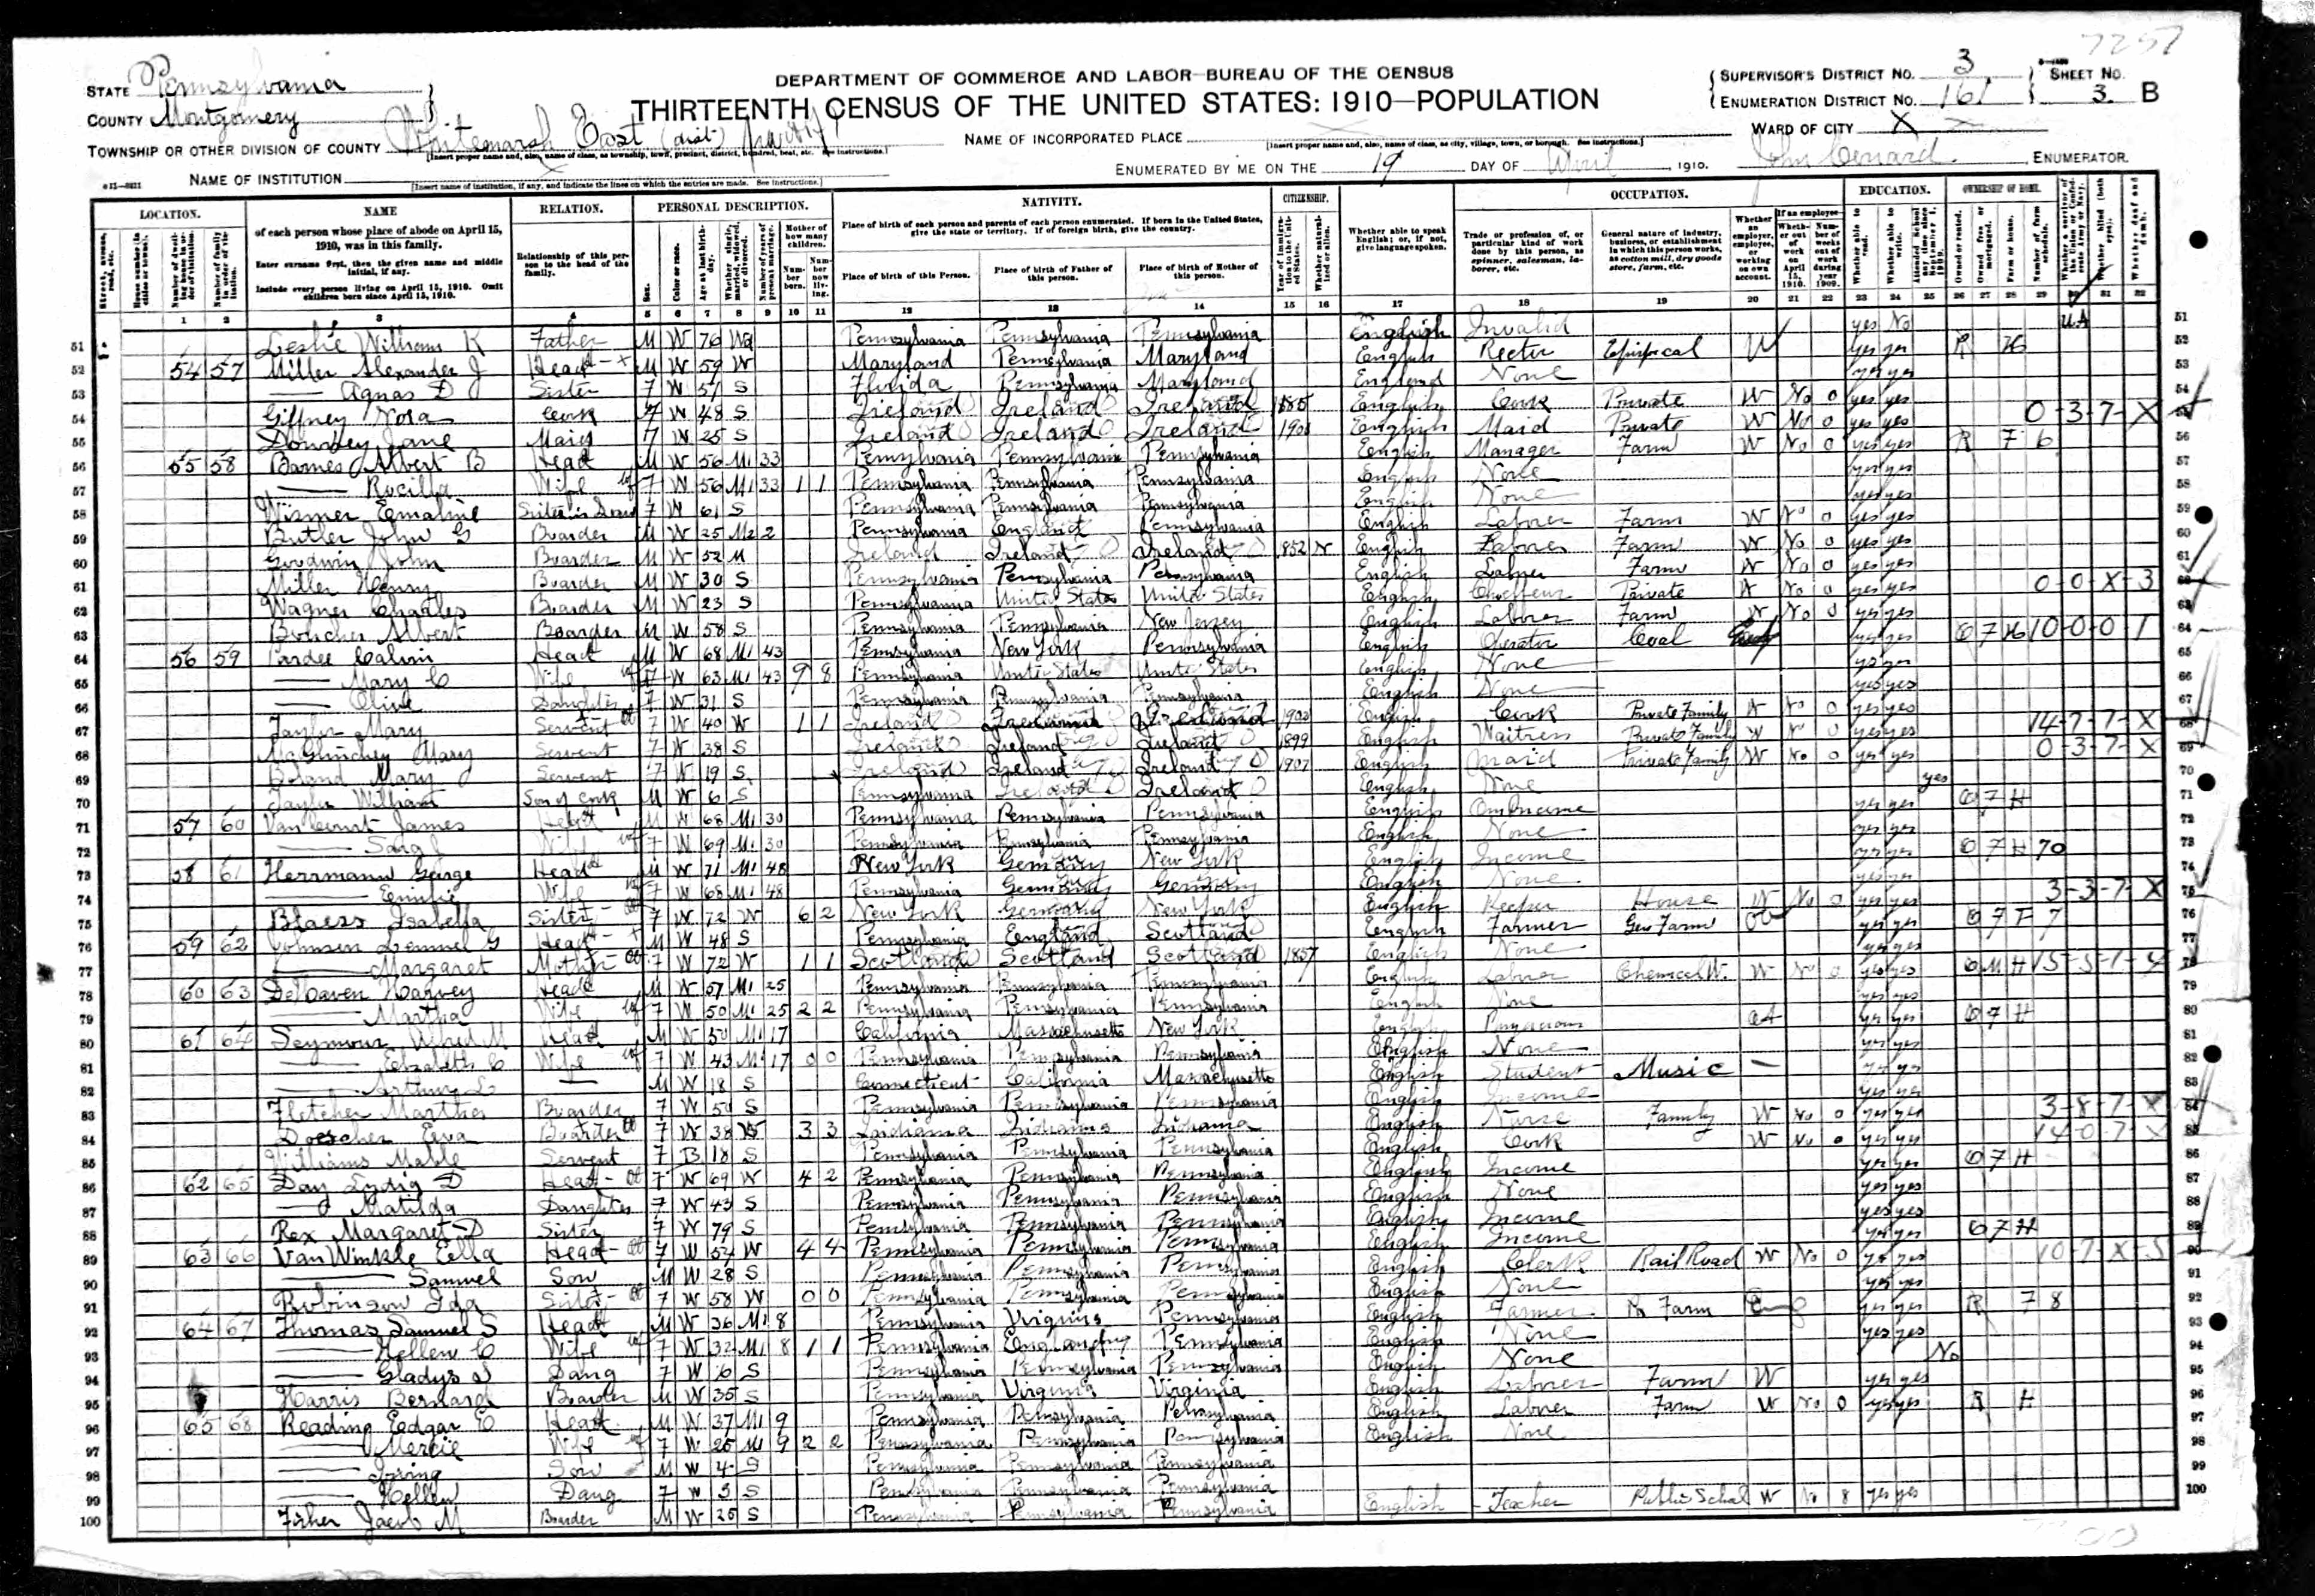 7257
DEPARTMENT OF COMMERCE AND LABOR—BUREAU OF THE CENSUS
THIRTEENTH CENSUS OF THE UNITED STATES: 1910—POPULATION
STATE Pennsylvania
COUNTY Montgomery
TOWNSHIP OR OTHER DIVISION OF COUNTY Whitemarsh East (dist)
[Insert proper name and, also, name of class, as township, town, precinct, district, hundred, beat, etc. See instructions.]
NAME OF INSTITUTION X
[Insert name of institution, if any, and indicate the lines on which the entries are made. See instructions.]
NAME OF INCORPORATED PLACE
[Insert proper name and, also, name of class, as city, village, town, or borough. See instructions.]
ENUMERATED BY ME ON THE 19 DAY OF April, 1910. ENUMERATOR.
SUPERVISOR'S DISTRICT NO. 3
ENUMERATION DISTRICT NO. 161
SHEET NO. 3 B
WARD OF CITY X
LOCATION. NAME RELATION. PERSONAL DESCRIPTION. NATIVITY. CITIZENSHIP. OCCUPATION. EDUCATION. OWNERSHIP OF HOME.
of each person whose place of abode on April 15, 1910, was in this family.
Enter surname first, then the given name and middle initial, if any.
Include every person living on April 15, 1910. Omit children born since April 15, 1910.
Relationship of this person to the head of the family.
Place of birth of each person and parents of each person enumerated. If born in the United States, give the state or territory. If of foreign birth, give the country.
Place of birth of this Person. Place of birth of Father of this person. Place of birth of Mother of this person.
Whether able to speak English; or, if not, give language spoken.
Trade or profession of, or particular kind of work done by this person, as spinner, salesman, laborer, etc.
General nature of industry, business, or establishment in which this person works, as cotton mill, dry goods store, farm, etc.
51 Leslie William K Father M W 76 Wd Pennsylvania Pennsylvania Pennsylvania English Invalid yes No UA
52 54 57 Miller Alexander J Head M W 59 W Maryland Pennsylvania Maryland English Rector W yes yes R H
53 Agnas D Sister F W 51 S Florida Pennsylvania Maryland None yes yes
54 Giffney Nora Cook F W 48 S Ireland Ireland Ireland 1885 English Cook Private W No 0 yes yes
55 Jane Maid F W 25 S Ireland Ireland Ireland English Maid Private W No 0 yes yes 0-3-7-X
56 55 58 Barnes Albert B Head M W 56 M1 33 Pennsylvania Pennsylvania Pennsylvania English Manager Farm W No 0 yes yes R F 6
57 Wife F W 56 M1 33 1 1 Pennsylvania Pennsylvania Pennsylvania English None yes yes
58 Wismer Emaline Sister in Law F W 61 S Pennsylvania Pennsylvania Pennsylvania English None yes yes
59 Butler John G Boarder M W 25 M2 2 Pennsylvania England Pennsylvania English Laborer Farm W No 0 yes yes
60 Goodwin John Boarder M W 52 M Ireland Ireland Ireland 1852 N English Laborer Farm W No 0 yes yes
61 Miller Henry Boarder M W 30 S Pennsylvania Pennsylvania Pennsylvania English Laborer Farm W No 0 yes yes
62 Wagner Charles Boarder M W 23 S Pennsylvania United States United States English Private No 0 yes yes 0-0-X-3
63 Boucher Albert Boarder M W 58 S Pennsylvania Pennsylvania New Jersey English Laborer Farm W No 0 yes yes
64 56 59 Pardee Calvin Head M W 68 M1 43 Pennsylvania New York Pennsylvania English Operator Coal yes yes O F H 10-0-0-1
65 Mary C Wife F W 63 M1 43 9 8 Pennsylvania United States United States English None yes yes
66 Olive Daughter F W 31 S Pennsylvania Pennsylvania Pennsylvania English None yes yes
67 Taylor Mary Servent F W 40 W 1 1 Ireland Ireland Ireland 1900 English Cook Private Family No 0 yes yes
68 McGlinchey Mary Servent F W 38 S Ireland Ireland Ireland 1899 English Waitress Private Family W No 0 yes yes 14-7-7-X
69 Boland Mary Servent F W 19 S Ireland Ireland Ireland 1907 English Maid Private Family W No 0 yes yes 0-3-7-X
70 Taylor William Son of Cook M W 6 S Pennsylvania Ireland Ireland English None yes
71 57 60 Van Court James Head M W 68 M1 30 Pennsylvania Pennsylvania Pennsylvania English Own Income yes yes O F H
72 Wife F W 69 M1 30 Pennsylvania Pennsylvania Pennsylvania English None yes yes
73 58 61 Herrmann George Head M W 71 M1 48 New York Germany New York English Income yes yes O F H 70
74 Emilie Wife F W 68 M1 48 Pennsylvania Germany Germany English None yes yes
75 Blaess Isabella Sister F W 72 W 6 2 New York Germany New York English Keeper House W No 0 yes yes 3-3-7-X
76 59 62 Johnson Lemuel G Head M W 48 S Pennsylvania England Scotland English Farmer Gen Farm yes yes O F F 7
77 Margaret Mother F W 72 W 1 1 Scotland Scotland Scotland 1857 English None yes yes
78 60 63 DeHaven Harvey Head M W 57 M1 25 Pennsylvania Pennsylvania Pennsylvania English Laborer Chemical W. W No 0 yes yes O M H
79 Martha Wife F W 50 M1 25 2 2 Pennsylvania Pennsylvania Pennsylvania English None yes yes
80 61 64 Seymour Alfred M Head M W 50 M1 17 California Massachusetts New York English yes yes O F H
81 Elizabeth C Wife F W 43 M1 17 0 0 Pennsylvania Pennsylvania Pennsylvania English None yes yes
82 Arthur L — M W 18 S Connecticut California Massachusetts English Student Music — yes yes
83 Fletcher Martha Boarder F W 50 S Pennsylvania Pennsylvania Pennsylvania English Income yes yes
84 Doescher Eva Boarder F W 38 W 3 3 Indiana Indiana Indiana English Nurse Family W No 0 yes yes 3-8-7-X
85 Williams Mable Servent F B 18 S Pennsylvania Pennsylvania Pennsylvania English Cook W No 0 yes yes 14-0-7-X
86 62 65 Day Lydia D Head F W 69 W 4 2 Pennsylvania Pennsylvania Pennsylvania English Income yes yes O F H
87 Matilda Daughter F W 43 S Pennsylvania Pennsylvania Pennsylvania English None yes yes
88 Rex Margaret D Sister F W 79 S Pennsylvania Pennsylvania Pennsylvania English Income yes yes
89 63 66 Van Winkle Ella Head F W 54 W 4 4 Pennsylvania Pennsylvania Pennsylvania English Income yes yes O F H
90 Samuel Son M W 28 S Pennsylvania Pennsylvania Pennsylvania English Clerk Rail Road W No 0 yes yes 10-7-X-5
91 Robinson Ida Sister F W 58 W 0 0 Pennsylvania Pennsylvania Pennsylvania English None yes yes
92 64 67 Thomas Samuel S Head M W 36 M1 8 Pennsylvania Virginia Pennsylvania English Farmer Farm yes yes R F 8
93 Hellen C Wife F W 32 M1 8 1 1 Pennsylvania England Pennsylvania English None yes yes
94 Gladys Daug F W 6 S Pennsylvania Pennsylvania Pennsylvania English None No
95 Harris Bernard Boarder M W 35 S Pennsylvania Virginia Virginia English Laborer Farm W yes yes
96 65 68 Reading Edgar C Head M W 37 M1 9 Pennsylvania Pennsylvania Pennsylvania English Laborer Farm W No 0 yes yes R H
97 Mercie Wife F W 25 M1 9 2 2 Pennsylvania Pennsylvania Pennsylvania English None
98 Irving Son M W 4 S Pennsylvania Pennsylvania Pennsylvania
99 Hellen Daug F W 3 S Pennsylvania Pennsylvania Pennsylvania
100 Fisher Jacob M Boarder M W 25 S Pennsylvania Pennsylvania Pennsylvania English Teacher Public School W No 8 yes yes